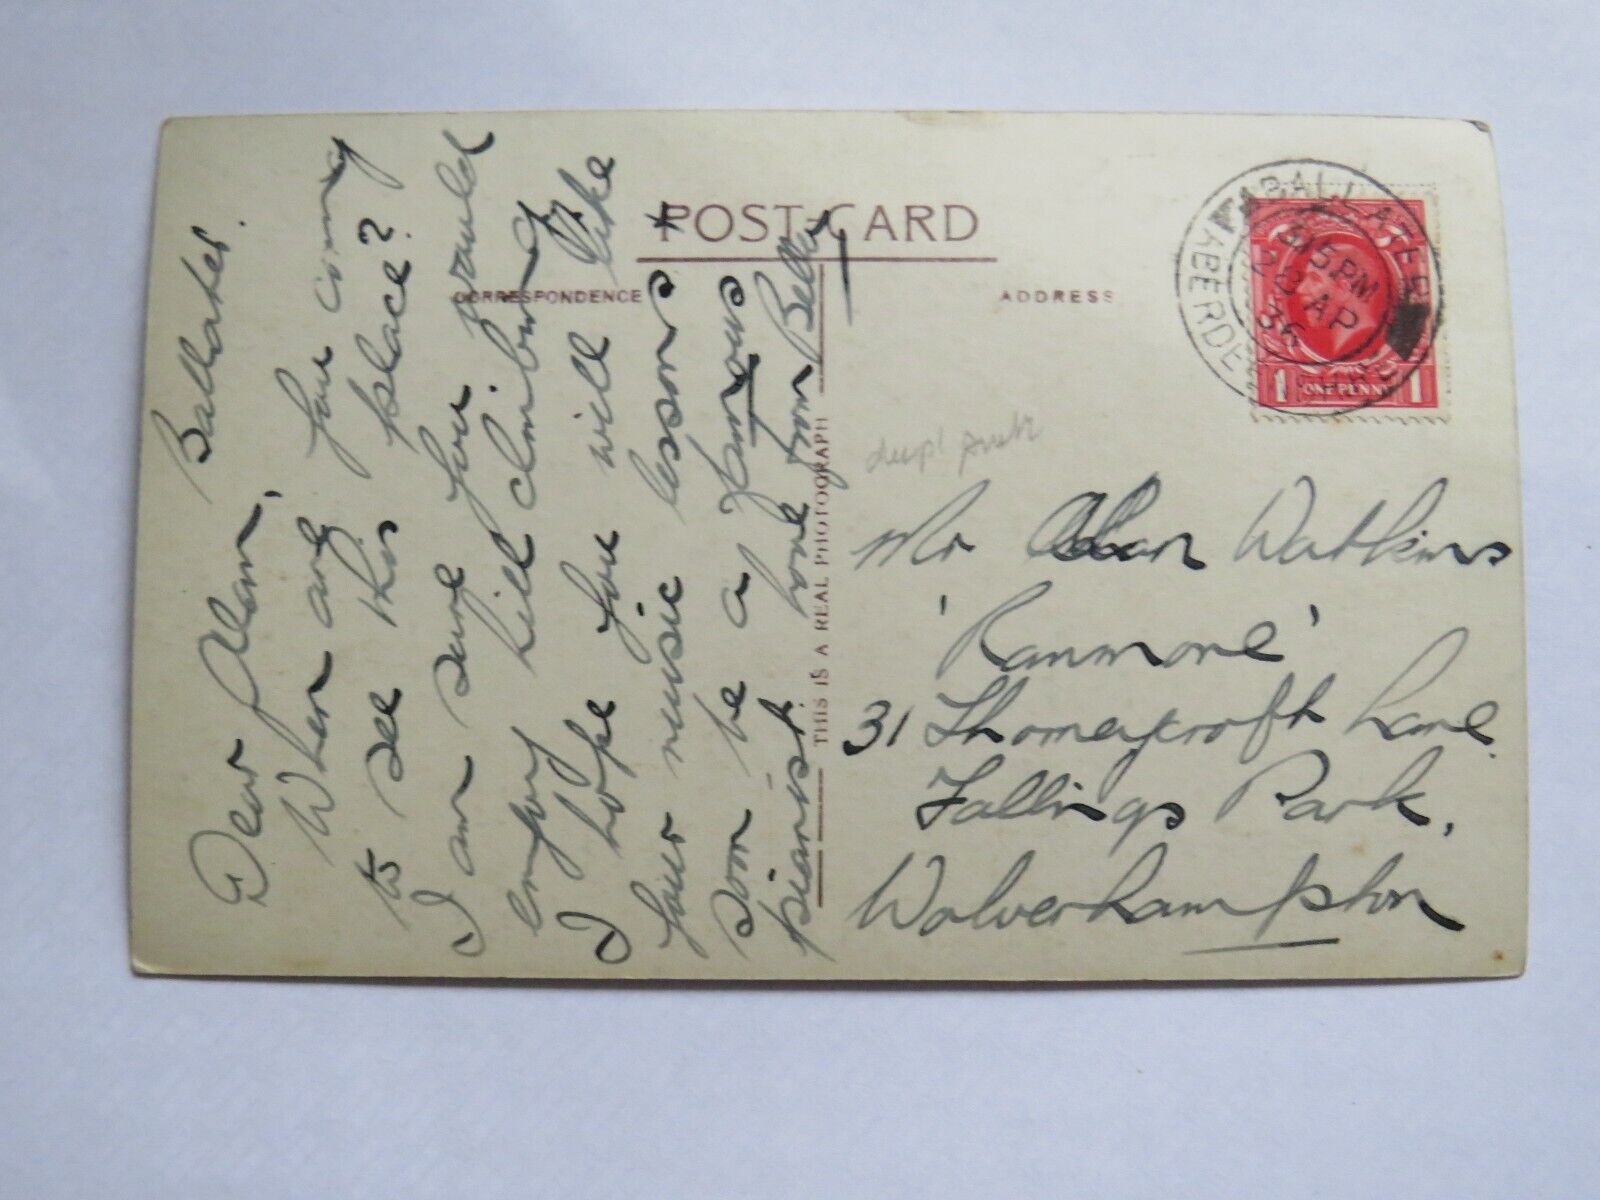 Ballater.
Dear Alan,
When are you coming
to see this place?
I am sure you would
enjoy hill climbing
I hope you will like
your music lessons &
soon be a famous
pianist. love from Bella
POST-CARD
CORRESPONDENCE
ADDRESS
THIS IS A REAL PHOTOGRAPH
BALLATER
ABERDEENSHIRE
315 PM
28 AP
36
1 ONE PENNY 1
Mr Alan Watkins
'Ranmore'
31 Thorneycroft Lane
Fallings Park,
Wolverhampton